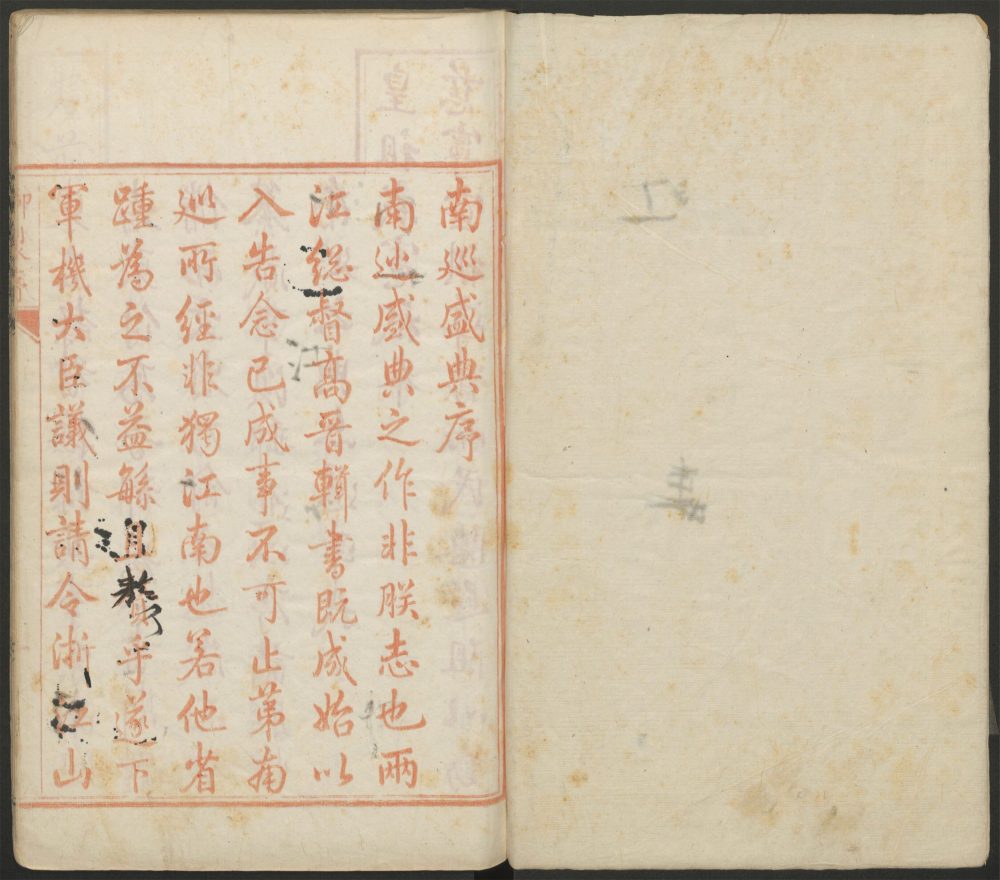 南巡盛典序
南巡盛典之作非朕志也兩
江總督高晉輯書既成始以
入告念已成事不可止第南
巡所經非獨江南也若他省
踵為之不益繇且贅乎遂下
軍機大臣議則請令浙江山